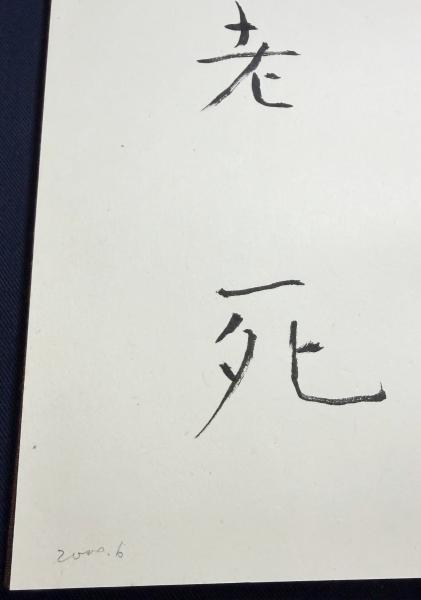 老
死
2000.6